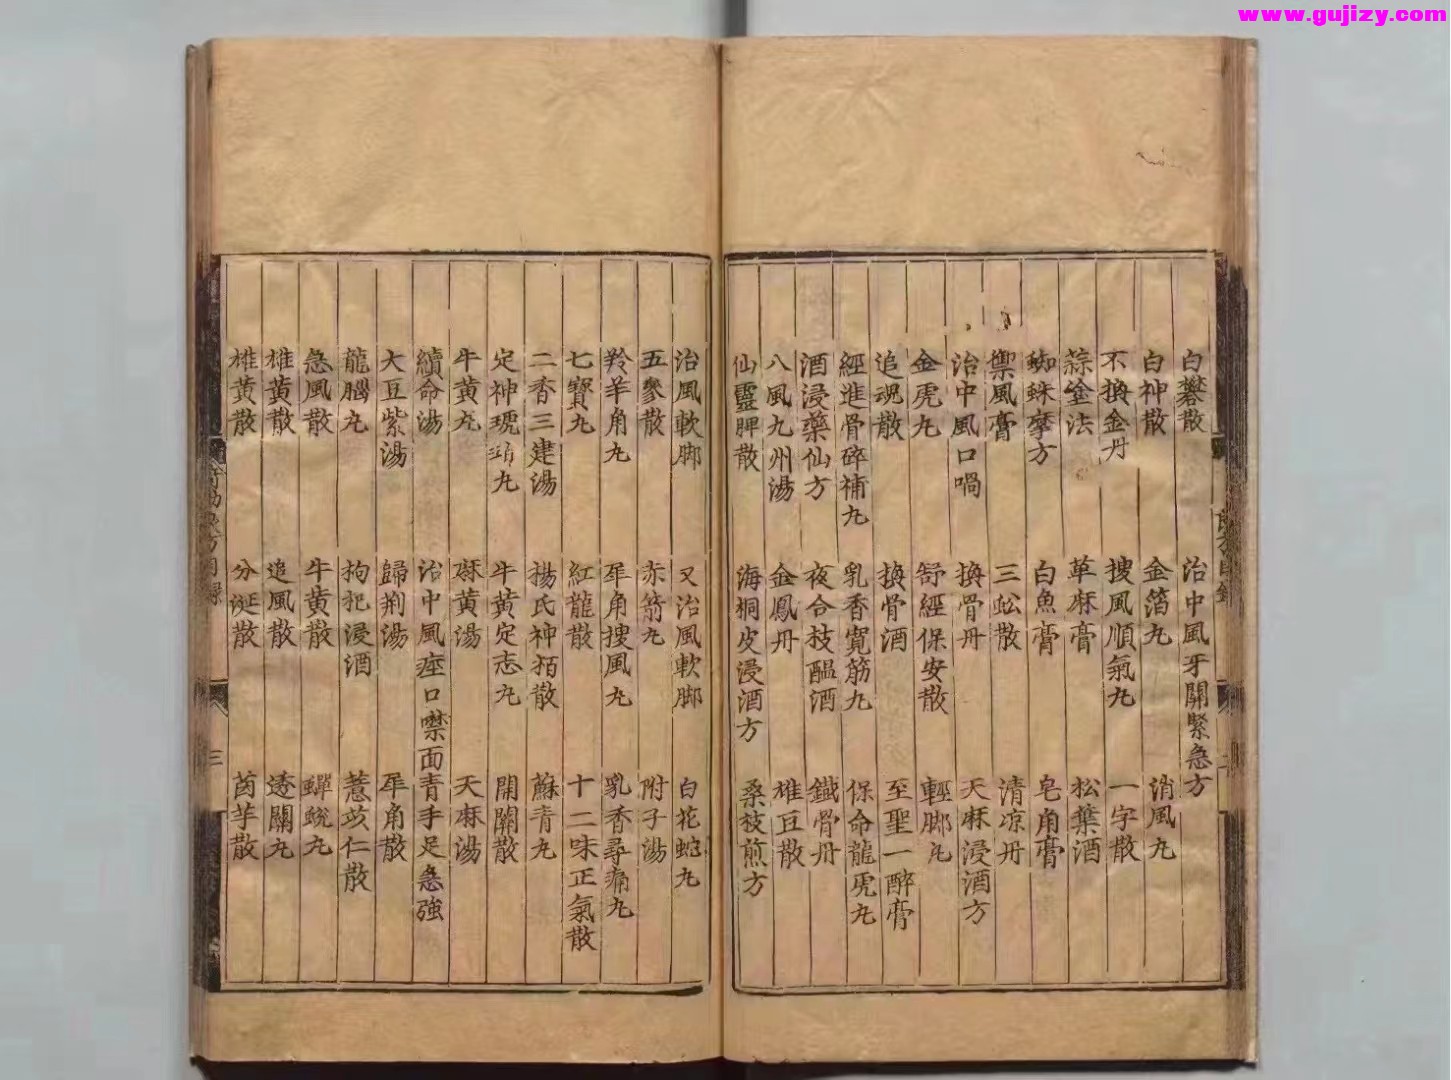 www.gujizy.com
白礬散 治中風牙關緊急方
白神散 金箔丸 消風丸
不換金丹 搜風順氣丸 一字散
蒜塗法 草麻膏 松葉酒
蜘蛛摩方 白魚膏 皂角膏
禦風膏 三蚣散 清凉丹
治中風口喎 換骨丹 天麻浸酒方
金虎丸 舒經保安散 輕脚丸
追魂散 換骨酒 至聖一醉膏
經進骨碎補丸 乳香寬筋丸 保命龍虎丸
酒浸藥仙方 夜合枝醖酒 鐵骨丹
八風九州湯 金鳳丹 雄豆散
仙靈脾散 海桐皮浸酒方 桑枝煎方
治風軟脚 又治風軟脚 白花蛇丸
五參散 赤箭丸 附子湯
羚羊角丸 犀角搜風丸 乳香尋痛丸
七寶丸 紅龍散 十二味正氣散
二香三建湯 楊氏神栢散 蘇青丸
定神琥珀丸 牛黃定志丸 開關散
牛黃丸 麻黃湯 天麻湯
續命湯 治中風痙口噤面青手足急強
大豆紫湯 歸荆湯 犀角散
龍腦丸 枸杞浸酒 薏苡仁散
急風散 牛黃散 蟬蛻丸
雄黃散 追風散 透關丸
雄黃散 分涎散 茵芋散
三